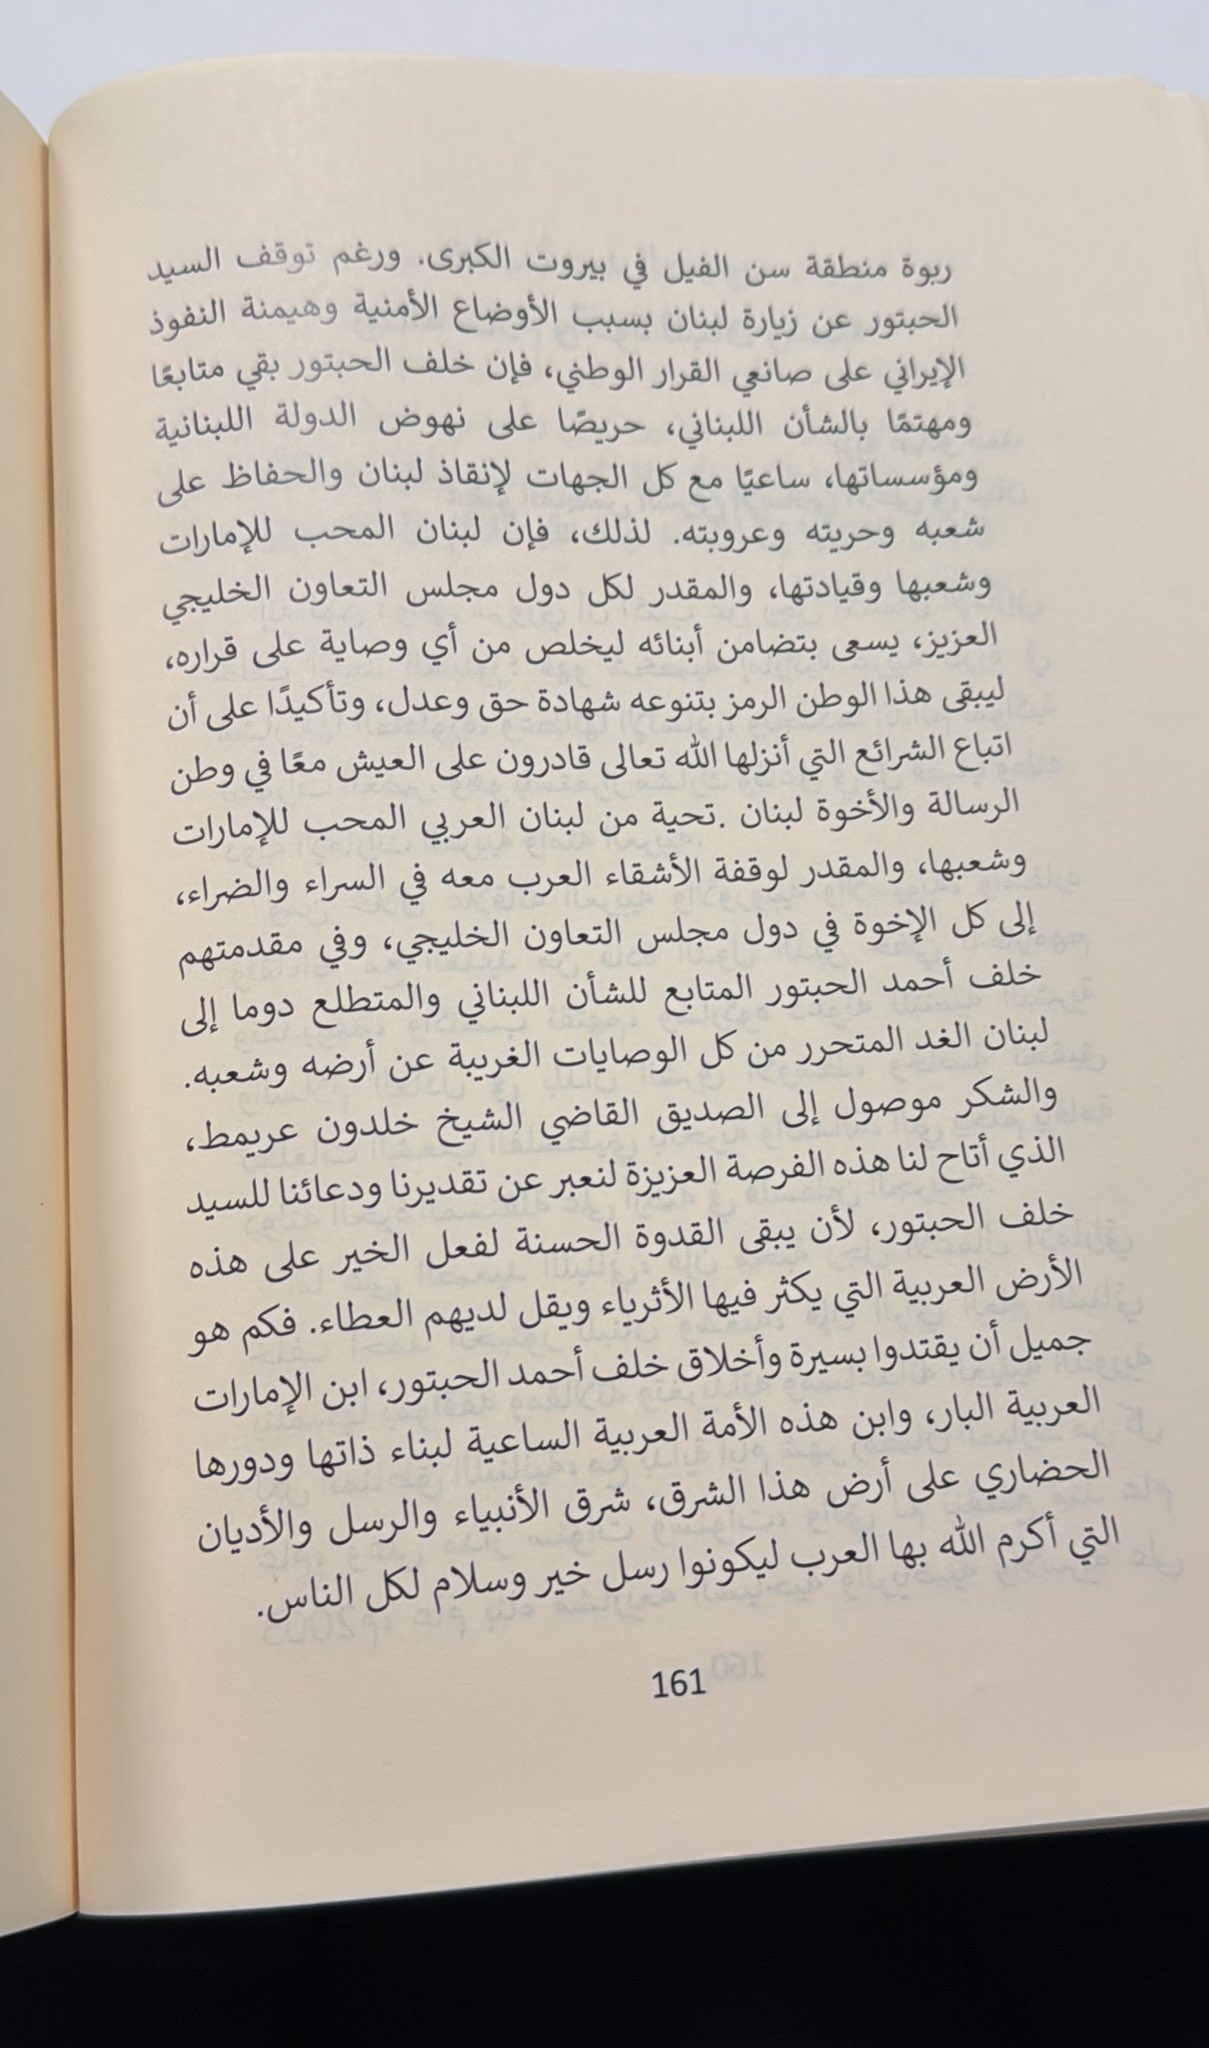 ربوة منطقة سن الفيل في بيروت الكبرى. ورغم توقف السيد
الحبتور عن زيارة لبنان بسبب الأوضاع الأمنية وهيمنة النفوذ
الإيراني على صانعي القرار الوطني، فإن خلف الحبتور بقي متابعًا
ومهتمًا بالشأن اللبناني، حريصًا على نهوض الدولة اللبنانية
ومؤسساتها، ساعيًا مع كل الجهات لإنقاذ لبنان والحفاظ على
شعبه وحريته وعروبته. لذلك، فإن لبنان المحب للإمارات
وشعبها وقيادتها، والمقدر لكل دول مجلس التعاون الخليجي
العزيز، يسعى بتضامن أبنائه ليخلص من أي وصاية على قراره،
ليبقى هذا الوطن الرمز بتنوعه شهادة حق وعدل، وتأكيدًا على أن
اتباع الشرائع التي أنزلها الله تعالى قادرون على العيش معًا في وطن
الرسالة والأخوة لبنان .تحية من لبنان العربي المحب للإمارات
وشعبها، والمقدر لوقفة الأشقاء العرب معه في السراء والضراء،
إلى كل الإخوة في دول مجلس التعاون الخليجي، وفي مقدمتهم
خلف أحمد الحبتور المتابع للشأن اللبناني والمتطلع دوما إلى
لبنان الغد المتحرر من كل الوصايات الغريبة عن أرضه وشعبه.
والشكر موصول إلى الصديق القاضي الشيخ خلدون عريمط،
الذي أتاح لنا هذه الفرصة العزيزة لنعبر عن تقديرنا ودعائنا للسيد
خلف الحبتور، لأن يبقى القدوة الحسنة لفعل الخير على هذه
الأرض العربية التي يكثر فيها الأثرياء ويقل لديهم العطاء. فكم هو
جميل أن يقتدوا بسيرة وأخلاق خلف أحمد الحبتور، ابن الإمارات
العربية البار، وابن هذه الأمة العربية الساعية لبناء ذاتها ودورها
الحضاري على أرض هذا الشرق، شرق الأنبياء والرسل والأديان
التي أكرم الله بها العرب ليكونوا رسل خير وسلام لكل الناس.
161